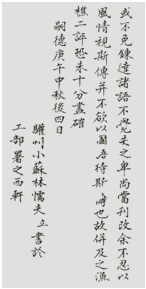 或不免鍊達諸語不覺失之卑尚當刊改余不忍以
風情視斯傳并不欲以圖吾待斯時也故併及之漁
樵二評恐未十分盡確
嗣德庚午中秋後四日
驩州小蘇林懦夫立書於
工部署之西軒